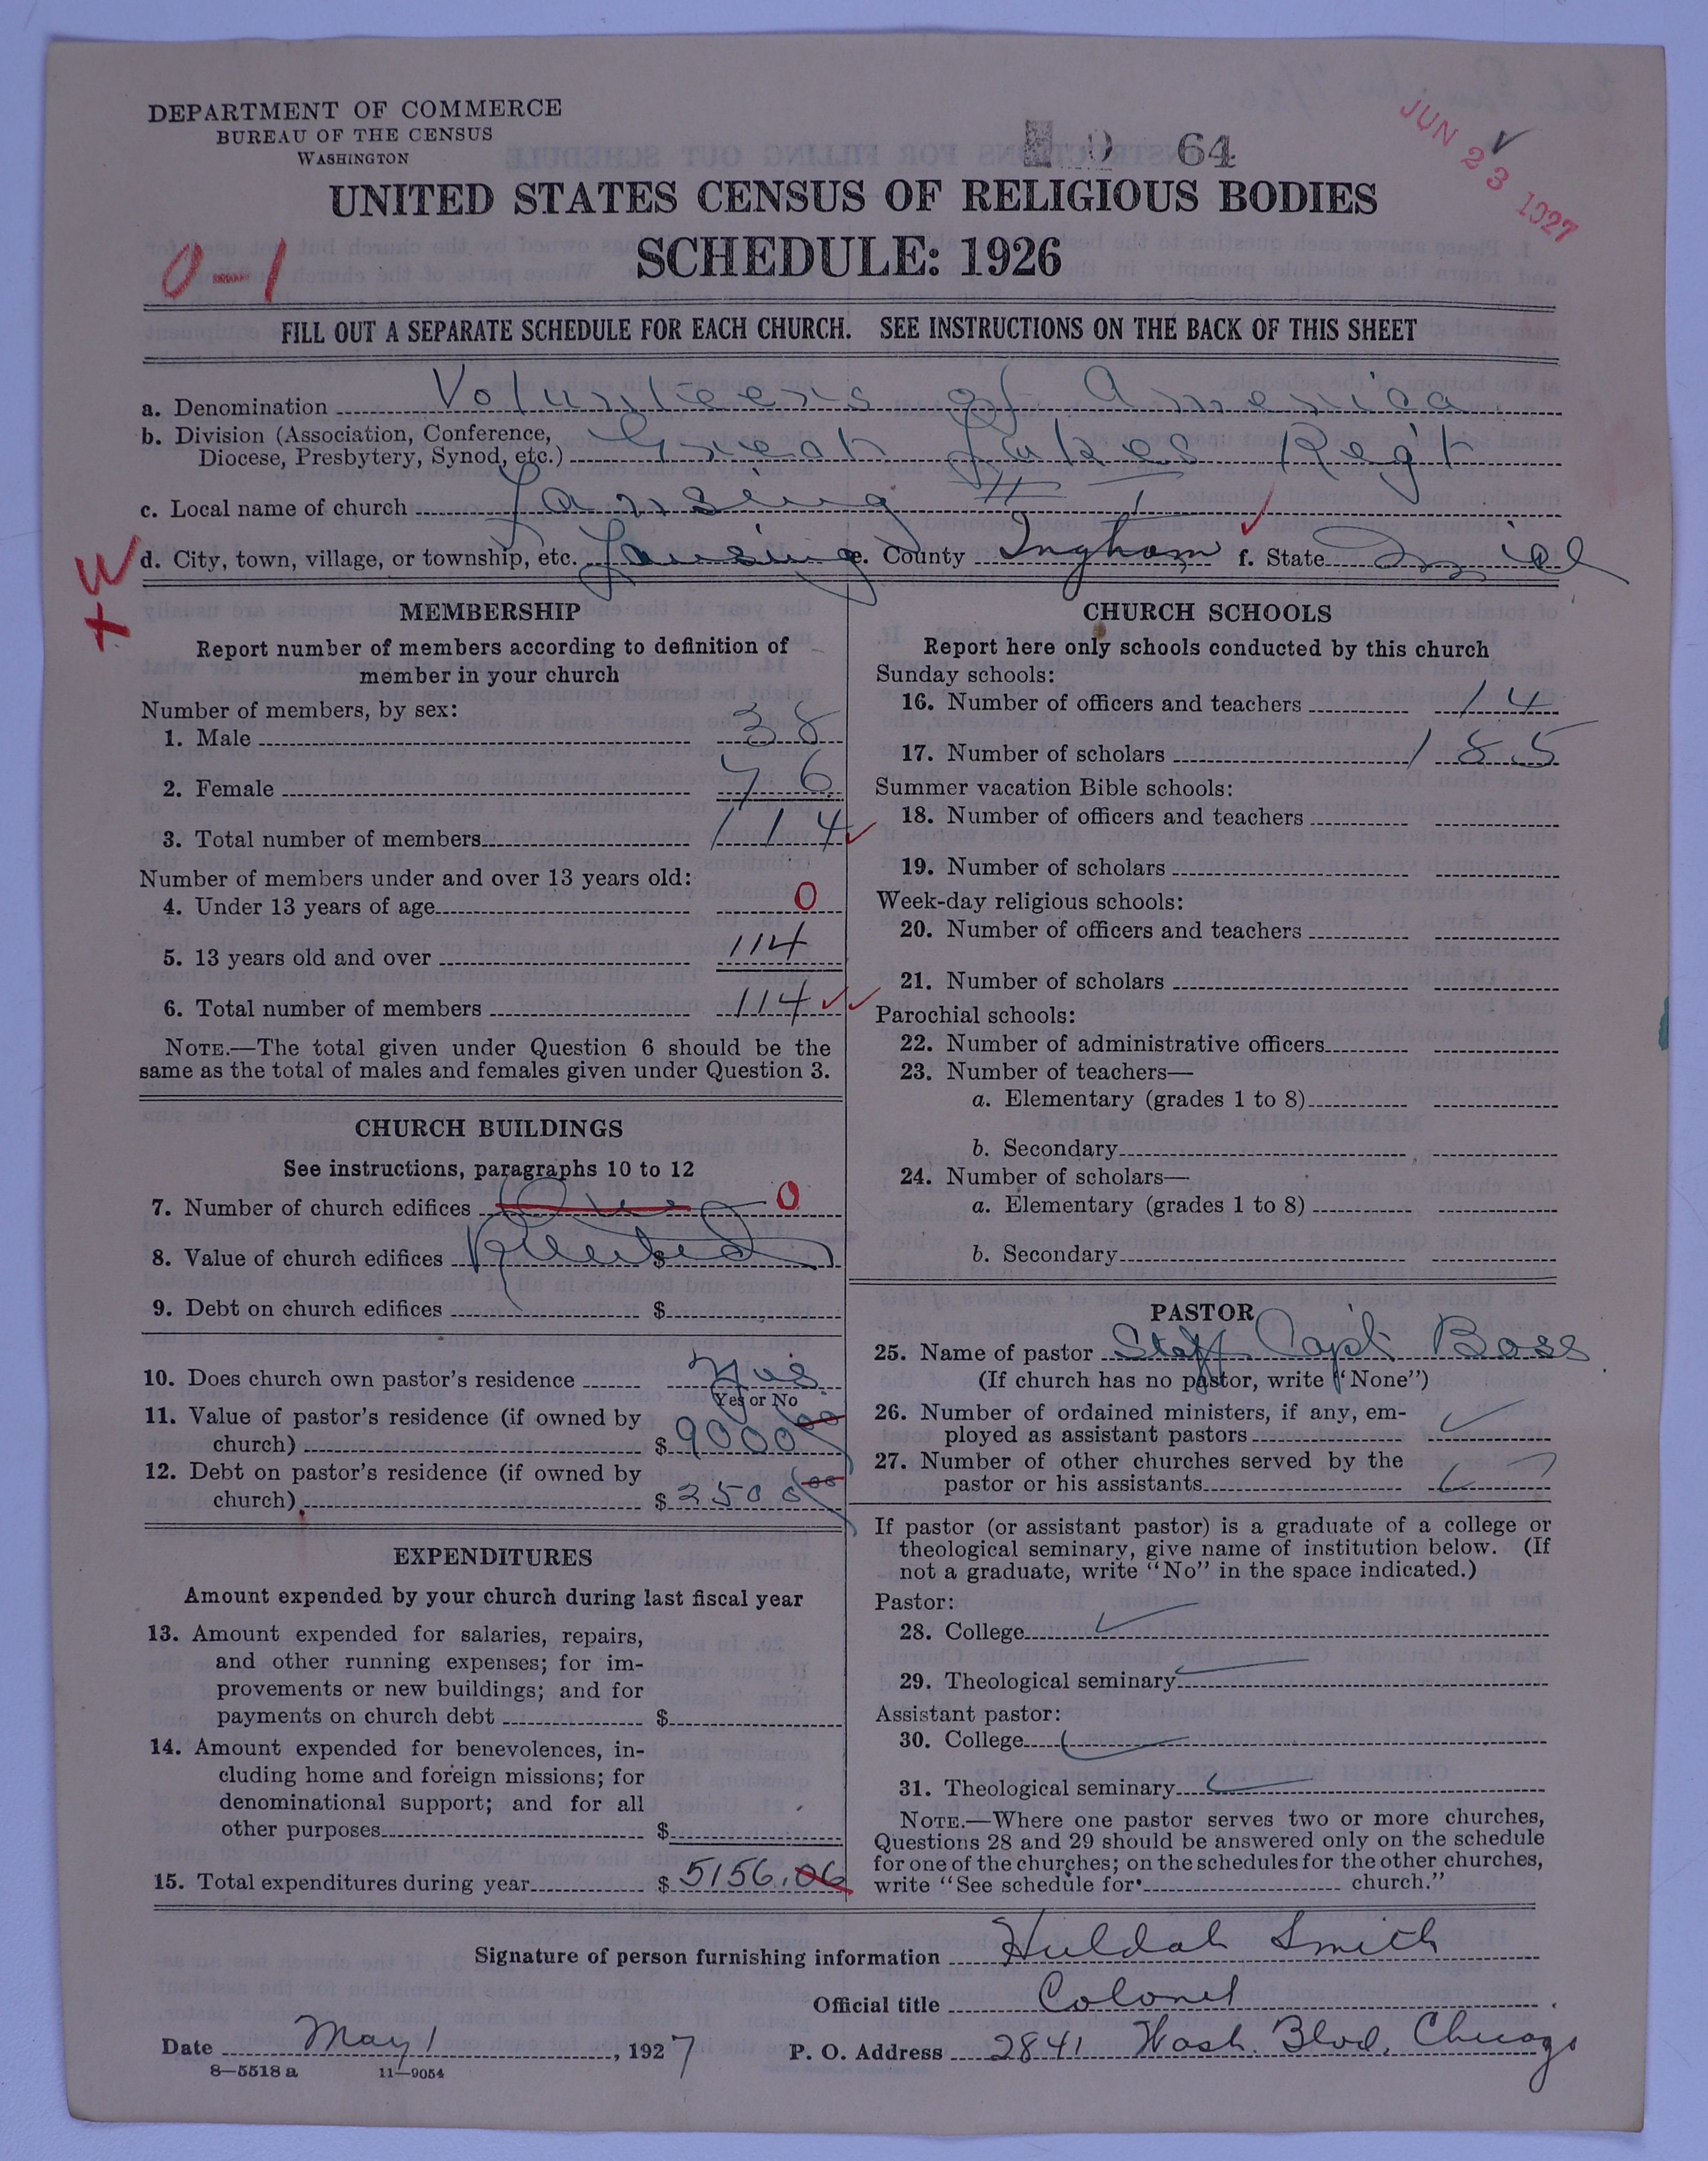 DEPARTMENT OF COMMERCE
BUREAU OF THE CENSUS
WASHINGTON
64
JUN 23 1927
UNITED STATES CENSUS OF RELIGIOUS BODIES
SCHEDULE: 1926
0-1
FILL OUT A SEPARATE SCHEDULE FOR EACH CHURCH. SEE INSTRUCTIONS ON THE BACK OF THIS SHEET
a. Denomination Volunteers of America
b. Division (Association, Conference,
Diocese, Presbytery, Synod, etc.) Great Lakes Reg't
c. Local name of church Lansing # 1
d. City, town, village, or township, etc. Lansing e. County Ingham f. State Mich
MEMBERSHIP
Report number of members according to definition of
member in your church
Number of members, by sex:
1. Male 38
2. Female 76
3. Total number of members 114
Number of members under and over 13 years old:
4. Under 13 years of age 0
5. 13 years old and over 114
6. Total number of members 114
NOTE.—The total given under Question 6 should be the
same as the total of males and females given under Question 3.
CHURCH BUILDINGS
See instructions, paragraphs 10 to 12
7. Number of church edifices 0
8. Value of church edifices Rented $
9. Debt on church edifices $
10. Does church own pastor's residence yes
Yes or No
11. Value of pastor's residence (if owned by
church) $ 9000 00
12. Debt on pastor's residence (if owned by
church) $ 2500 00
EXPENDITURES
Amount expended by your church during last fiscal year
13. Amount expended for salaries, repairs,
and other running expenses; for im-
provements or new buildings; and for
payments on church debt $
14. Amount expended for benevolences, in-
cluding home and foreign missions; for
denominational support; and for all
other purposes $
15. Total expenditures during year $ 5156.06
CHURCH SCHOOLS
Report here only schools conducted by this church
Sunday schools:
16. Number of officers and teachers 14
17. Number of scholars 185
Summer vacation Bible schools:
18. Number of officers and teachers
19. Number of scholars
Week-day religious schools:
20. Number of officers and teachers
21. Number of scholars
Parochial schools:
22. Number of administrative officers
23. Number of teachers—
a. Elementary (grades 1 to 8)
b. Secondary
24. Number of scholars—
a. Elementary (grades 1 to 8)
b. Secondary
PASTOR
25. Name of pastor Staff Capt. Boss
(If church has no pastor, write "None")
26. Number of ordained ministers, if any, em-
ployed as assistant pastors
27. Number of other churches served by the
pastor or his assistants
If pastor (or assistant pastor) is a graduate of a college or
theological seminary, give name of institution below. (If
not a graduate, write "No" in the space indicated.)
Pastor:
28. College
29. Theological seminary
Assistant pastor:
30. College
31. Theological seminary
NOTE.—Where one pastor serves two or more churches,
Questions 28 and 29 should be answered only on the schedule
for one of the churches; on the schedules for the other churches,
write "See schedule for church."
Signature of person furnishing information Huldah Smith
Official title Colonel
Date May 1, 1927 P. O. Address 2841 Wash. Blvd, Chicago
8—5518 a 11—9054